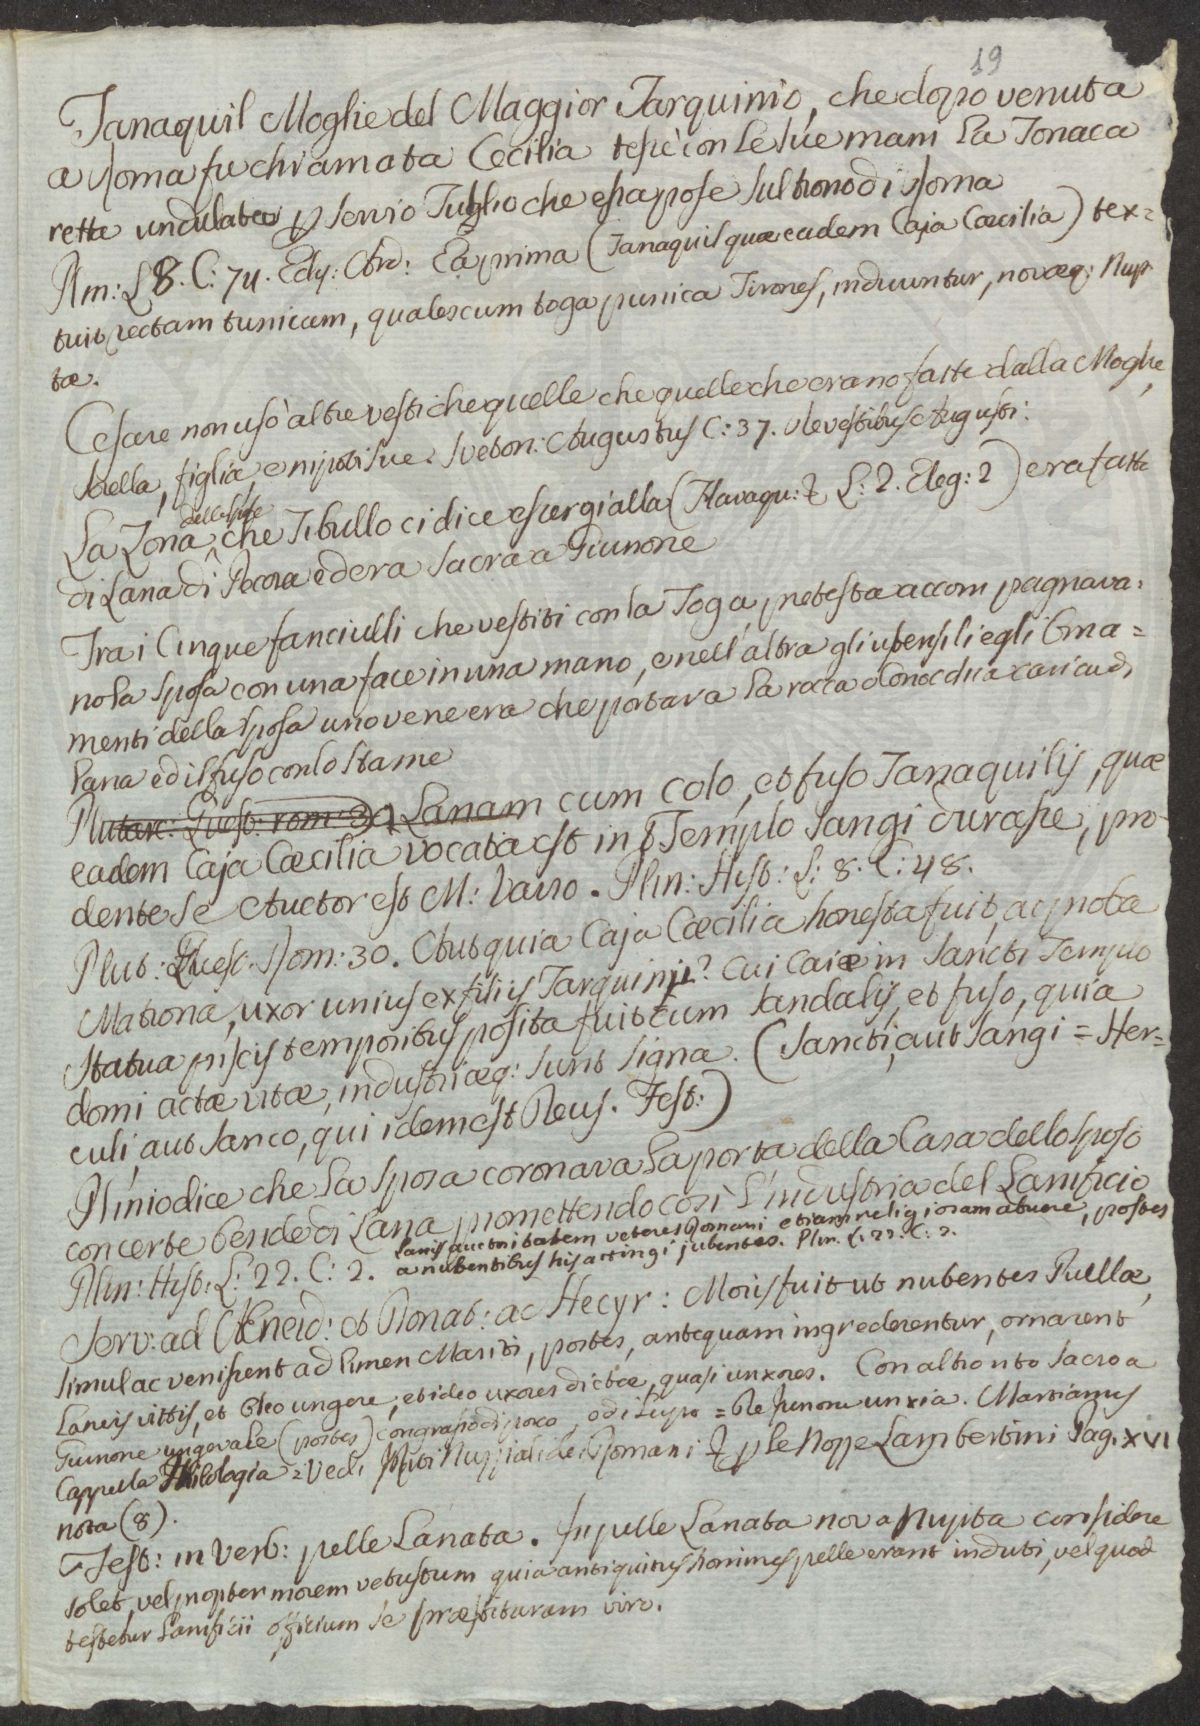 19
Tanaquil Moglie del Maggior Tarquinio, che dopo venuta
a Roma fu chiamata Cecilia tessè con le sue mani la Tonaca
retta undulata p Servio Tullio che essa pose sul trono di Roma
Plin: L 8. C: 74. Edy: Ard: Ea prima (Tanaquil quæ eadem Caja Cæcilia) tex=
tuit rectam tunicam, quales cum toga punica Tirones, induuntur, novæq: Nup
tæ.
Cesare non usò altre vesti che quelle che quelle che erano fatte dalla Moglie,
sorella, figlia, e nipoti sue. Sveton: Augustus C: 37. de vestibus Augusti:
dello spose
La Zona ^ che Tibullo ci dice esser gialla (L: 2. Eleg: 2) era fatta
di Lana di Pecora ed era sacra a Giunone
Tra i Cinque fanciulli che vestiti con la Toga pretesta accompagnava=
no la sposa con una face in una mano, e nell'altra gli utensili e gli Orna=
menti della sposa uno vene era che portava la rocca o Conocchia carica di
Lana ed il fuso con lo stame
Plutarc: Quest: rom: 3 Lanam cum colo, et fuso Tanaquilis, quæ
eadem Caja Cæcilia vocata est in Templo Sangi durasse, pro
dente se Auctor est M: Varro. Plin: Hist: L: 8. C: 48.
Plut: Quest. Rom: 30. Aut quia Caja Cæcilia honesta fuit, ac proba
Matrona, uxor unius ex filiis Tarquinii? Cui Caiæ in Sancti Templo
Statua priscis temporibus posita fuit cum sandalis, et fuso, quia
domi actæ vitæ, industriæq: sunt signa. (Sancti, aut Sangi = Her=
culi, aut Sanco, qui idem est Deus. Fest:)
Plinio dice che la sposa coronava la porta della Casa dello sposo
con certe bende di Lana promettendo così l'industria del Lanificio
Plin: Hist: L: 22. C: 2. Lanis auctoritatem veteres Romani etiam religiosam habuere, postes
a nubentibus his attingi jubentes. Plin. L: 22. C: 2.
Serv: ad Æneid: et Donat: ac Hecyr: Moris fuit ut nubentes Puellæ,
simul ac venissent ad limen Mariti, postes, antequam ingrederentur, ornarent
Laneis vittis, et Oleo ungere, et ideo uxores dictæ, quasi unxores. Con altro rito sacro a
Giunone ungevale (postes) con grasso di porco, o di Lupo = De Junone unxia. Martianus
Cappella Philologia = Vedi Riti Nuzziali de Romani p le Nozze Lambertini Pag. XVI
nota (8).
Fest: in Verb: pelle Lanata. In pelle Lanata nova Nupta considere
solet, vel propter morem vetustum quia antiquitus homines pelle erant induti, vel quod
testetur Lanificii officium se præstituram viro.